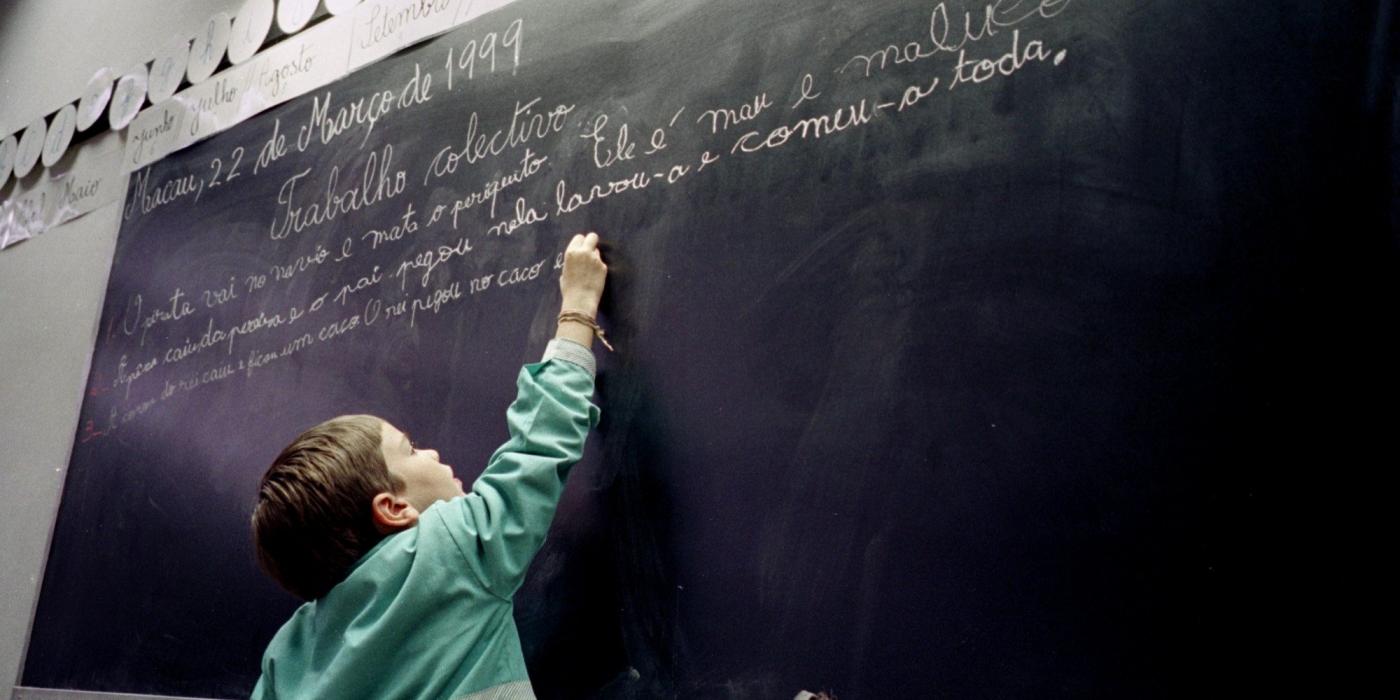 Junho Julho Agosto Setembro
Maio
Macau, 22 de Março de 1999
Trabalho colectivo
1. O pirata vai no navio e mata o periquito. Ele é mau e maluco
2- A pêra caiu da pereira e o pai pegou nela lavou-a e comeu-a toda.
3- A coroa do rei caiu e ficou um caco. O rei pegou no caco e